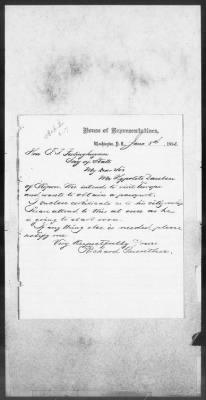 House of Representatives,
Washington, D.C., June 5th, 188
Hon F. T. Frelinghuysen
Secy of State
My Dear Sir
Mr Hyppolete
of Ripon Wis intends to visit Europe
and wants to obtain a passport.
I enclose certificate as to his citizenship
Please attend to this at once as he
is going to start soon.
If any thing else is needed, please
notify me
Very Respectfully Yours
Richard Guenther.